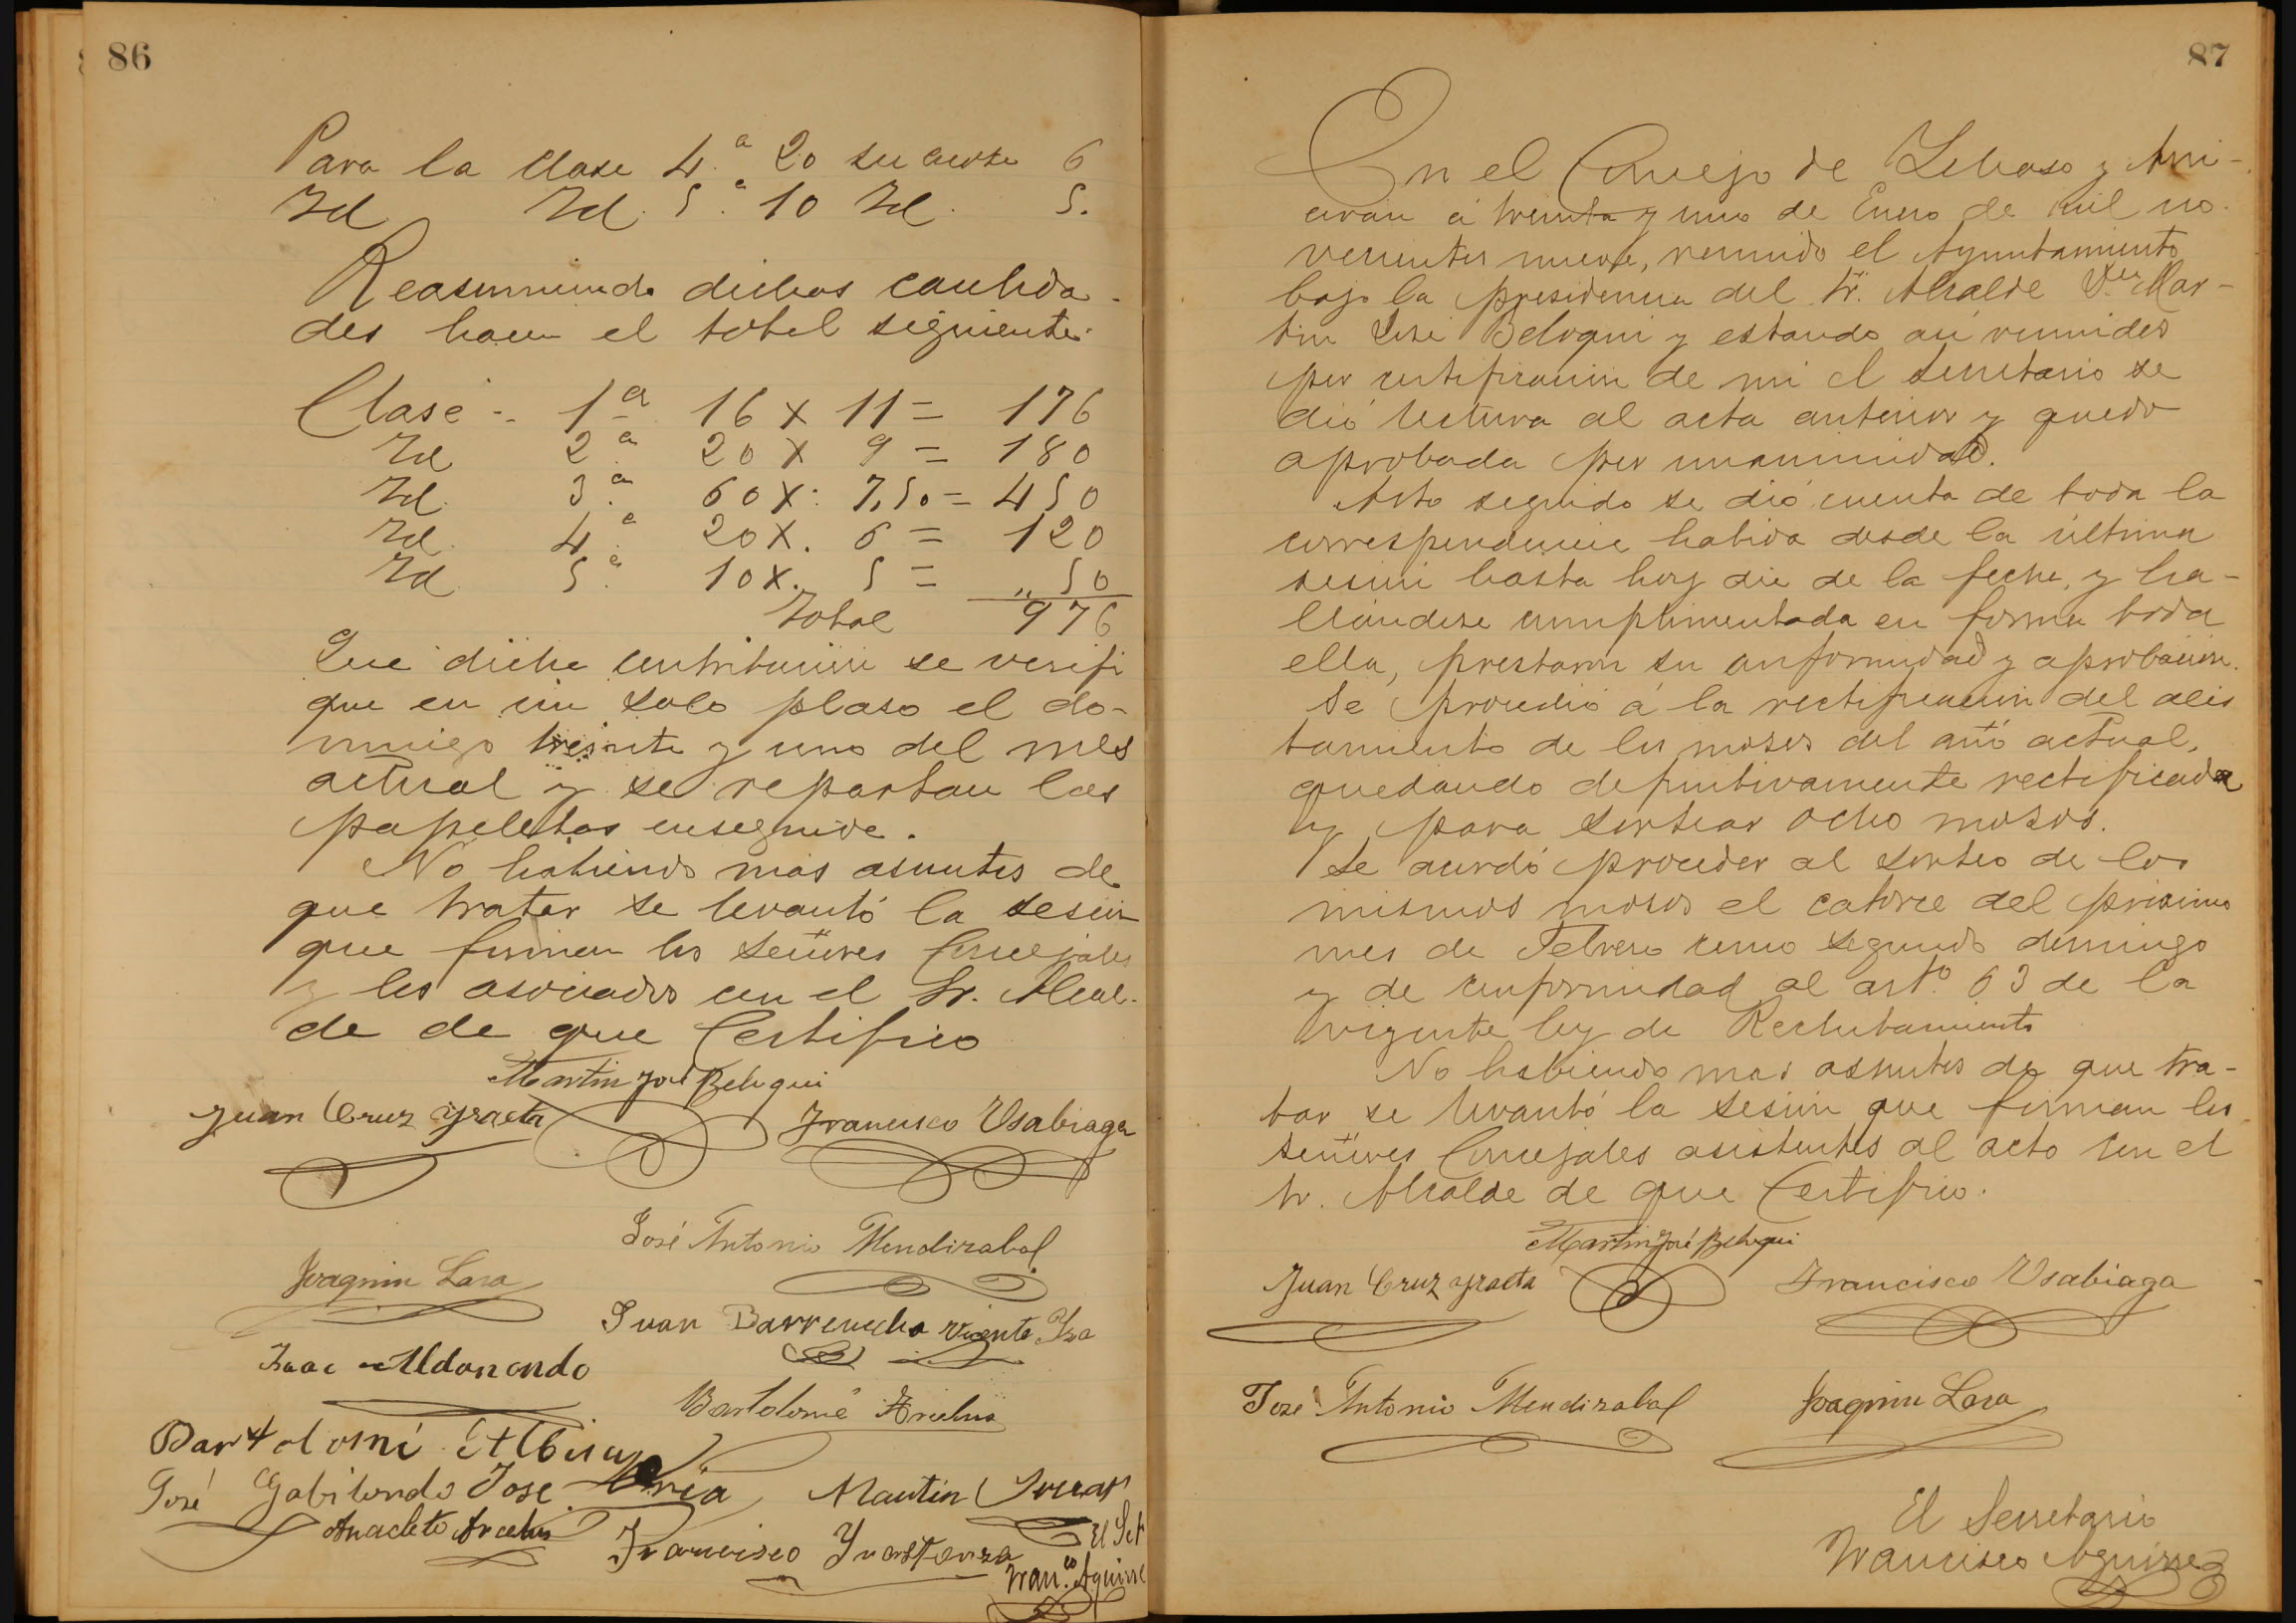 86
Para la clase 4.ª 20 su cuota 6
Id Id. 5.ª 10 Id. 5.
Reasumiendo dichas cantida-
des hacen el total siguiente.
Clase - 1ª 16 x 11 = 176
Id 2ª 20 x 9 = 180
Id. 3.ª 60 x: 7,50 = 450
Id. 4.ª 20 x. 6 = 120
Id 5.ª 10 x. 5 = " 50
Total 976
Que dicha contribución se verifi
que en un solo plaso el do-
mingo treinta y uno del mes
actual y se repartan las
papeletas enseguida.
No habiendo mas asuntos de
que tratar se levantó la sesión
que firman los señores Concejales
y los asociados con el Sr. Alcal-
de de que Certifico
Martin José Beloqui
Juan Cruz Yraeta Francisco Usabiaga
José Antonio Mendizabal
Joaquin Lasa
Juan Barrenechea Vicente
Isaac Aldanondo
Bartolomé Arcelus
Bartolomé
José Gabilondo José María Martin
Anacleto Arcelus Francisco El Set
Fran.co Aguirre
87
En el Concejo de y Arri-
aran á treinta y uno de Enero de mil no-
vecientos nueve, reunido el Ayuntamiento
bajo la presidencia del Sr. Alcalde Dn Mar-
tin José Beloqui y estando asi reunidos
por certificación de mi el Secretario se
dió lectura al acta anterior y quedo
aprobada por unanimidad.
Acto seguido se dió cuenta de toda la
correspondencia habida desde la última
sesión hasta hoy dia de la fecha, y ha-
llándose cumplimentada en forma toda
ella, prestaron su conformidad y aprobación.
Se procedió á la rectificación del alis
tamiento de los mosos del año actual,
quedando definitivamente rectificada
y para sortear ocho mosos.
Se acordó proceder al sorteo de los
mismos mosos el catorce del próximo
mes de Febrero como segundo domingo
y de conformidad al artº 63 de la
vigente ley de Reclutamiento
No habiendo mas asuntos de que tra-
tar se levantó la sesión que firman los
señores Concejales asistentes al acto con el
Sr. Alcalde de que Certifico.
Martin José Beloqui
Juan Cruz Yraeta Francisco Usabiaga
José Antonio Mendizabal Joaquin Lasa
El Secretario
Francisco Aguirre